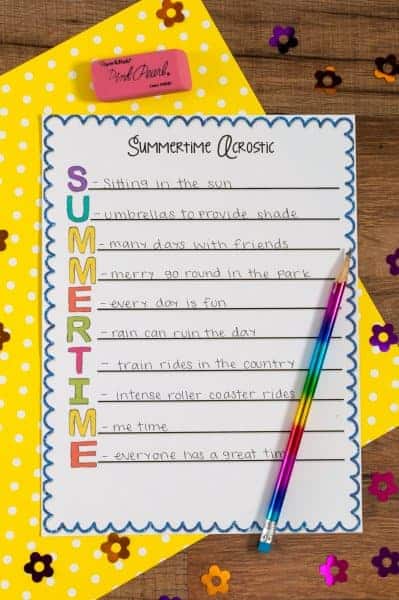 PaperMate
Pink Pearl
Summertime Acrostic
S - Sitting in the sun
U - umbrellas to provide shade
M - many days with friends
M - merry go round in the park
E - every day is fun
R - rain can ruin the day
T - train rides in the country
I - intense roller coaster rides
M - me time
E - everyone has a great